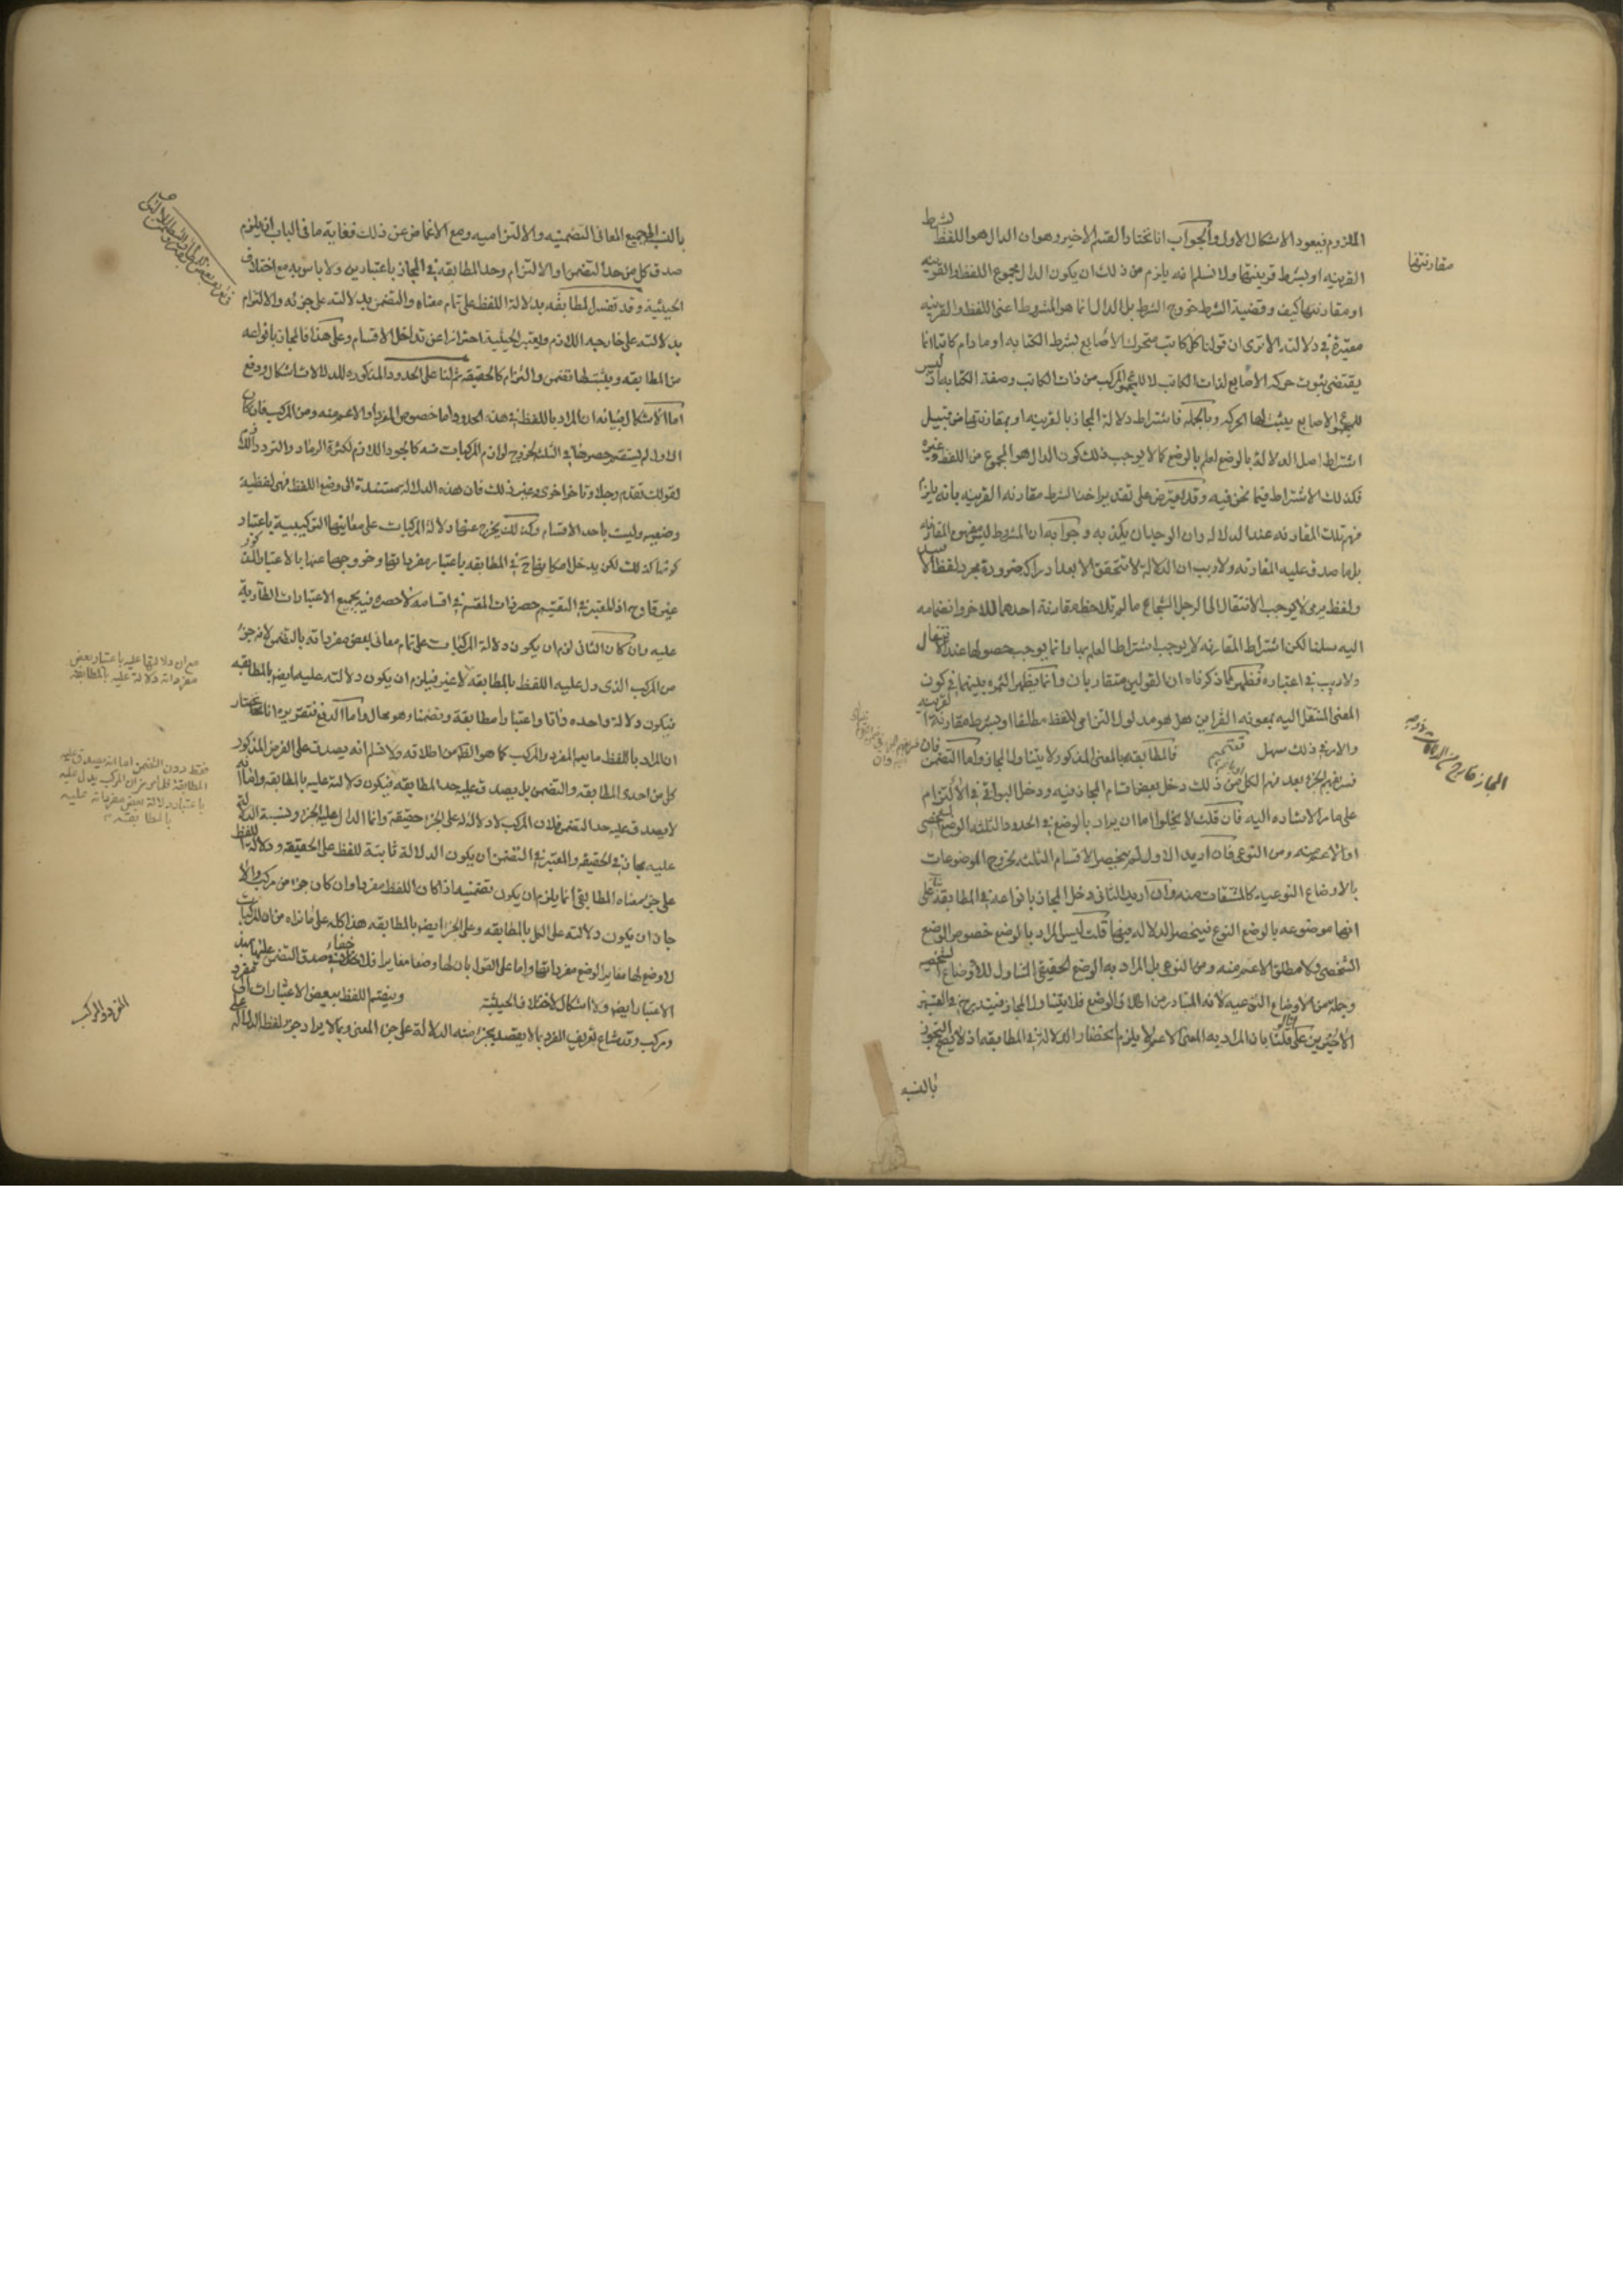 الملزوم فيعود الاشكال الاول والجواب انا نختار القسم الاخير وهو ان الدال هو اللفظ بشرط
القرينه او بشرط قرينتها ولا نسلم انه يلزم من ذلك ان يكون الدال مجموع اللفظ والقرينه
او مقارنتها كيف وقضية الشرط خروج الشرط بل الدال انما هو المشروط اعنى اللفظ والقرينه
معتبرة في دلالته الا ترى ان قولنا كل كاتب متحرك الاصابع بشرط الكتابه او ما دام كاتبا انما
يقتضى ثبوت حركه الاصابع لذات الكاتب لا للمجموع المركب من ذات الكاتب وصفة الكتابه اذ ليس
للمجموع الاصابع يثبت لها الحركه وبالجمله فاشتراط دلالة المجاز بالقرينه او بمقارنتها من قبيل
اشتراط اصل الدلالة بالوضع لعلم بالوضع كما لا يوجب ذلك كون الدال هو المجموع من اللفظ وغيره
فكذلك الاشتراط فيما نحن فيه وقد يعترض على تقدير اخذ الشرط مقارنه القرينه بانه يلزم
فهم تلك المقارنه عند الدلاله وان الوجدان يكذبه وجوابه ان المشروط ليس مفهوم المقارنه
بل ما صدق عليه المقارنه ولا ريب ان الدلالة لا تتحقق الا بعد ادراكه ضرورة مجرد لفظ الاسد
ولفظ يرمى لا يوجب الانتقال الى الرجل الشجاع ما لم تلاحظ مقارنة احدهما للاخر وانضمامه
اليه سلمنا لكن اشتراط المقارنه لا يوجب اشتراط العلم بها وانما يوجب حصولها عند الانتقال
ولا ريب في اعتباره فظهر مما ذكرناه ان القولين متقاربان وانما يظهر الثمره بينهما في كون
المعنى المنتقل اليه بمعونه القراين هل هو مدلول التزامى للفظ مطلقا او بشرط مقارنة القرينه
والامر في ذلك سهل تقسيم فالمطابقه بالمعنى المذكور لا يتناول المجاز واما التضمن فان
فسر بفهم الجزء بعد فهم الكل فمن ذلك دخل بعض اقسام المجاز فيه ودخل البواقى في الالتزام
على ما مر الاشاره اليه فان قلت لا يخلوا اما ان يراد بالوضع في الحدود الثلثه الوضع الشخصى
او الاعم منه ومن النوعى فان اريد الاول لم ينحصر الاقسام الثلثه لخروج الموضوعات
بالاوضاع النوعيه كالمشتقات منه وان اريد الثانى دخل المجاز بانواعه في المطابقه بناء على
انها موضوعه بالوضع النوعى فينحصر الدلاله فيها قلت ليس المراد بالوضع خصوص الوضع
الشخصى ولا مطلق الاعم منه ومن النوعى بل المراد به الوضع الحقيقى المتناول للاوضاع الشخصيه
وجملة من الاوضاع النوعيه لانه المتبادر من اطلاق الوضع فلا يتناول المجاز فيندرج في القسمين
الاخيرين على انا لو قلنا بان المراد به المعنى الاعم لا يلزم انحصار الدلالة في المطابقه اذ لا يصح التجوز
بالنسبه
مقارنتها
بالنسبه الى جميع المعانى التضمنيه والالتزاميه ومع الاغماض عن ذلك فغاية ما فى الباب ان يلزم
صدق كل من حد التضمن او الالتزام وحد المطابقه في المجاز باعتبارين ولا باس به مع اختلاف
الحيثيه وقد تفسر المطابقه بدلالة اللفظ على تمام معناه والتضمن بدلالته على جزئه والالتزام
بدلالته على خارجه اللازم ويعتبر الحيثية احترازا عن تداخل الاقسام وعلى هذا فالمجاز بانواعه
من المطابقه ويثبت لها تضمن والتزام كالحقيقه ثم لنا على الحدود المذكوره للدلالات اشكال ودفع
اما الاشكال فبيانه ان المراد باللفظ في هذه الحدود اما خصوص المفرد او الاعم منه ومن المركب فان كان
الاول لم يستقم حصرها في الثلث لخروج لوازم المركبات منه كالجود اللازم لكثرة الرماد والتردد اللازم
لقولك تقدم رجلا وتاخر اخرى وغير ذلك فان هذه الدلاله مستندة الى وضع اللفظ فهى لفظية
وضعيه وليست باحد الاقسام وكذلك يخرج عنها دلالة المركبات على معانيها التركيبية باعتبار
كونها كذلك لكن يدخل اصحابها ح في المطابقه باعتبار مفرداتها وخروجها عنها بالاعتبار المذكور
غير قادح اذ المعتبر في التقسيم حصر ذات المقسم في اقسامه لا حصره فيه بجميع الاعتبارات الطارية
عليه وان كان الثانى لزم ان يكون دلالة المركبات على تمام معانى بعض مفرداته بالتضمن لانه جزء
من المركب الذى دل عليه اللفظ بالمطابقه لا غير فيلزم ان يكون دلالته عليه ايضا بالمطابقه
فيكون دلالة واحده ذاتا واعتبارا مطابقة وتضمنا وهو محال واما الدفع فتقريره انا نختار
ان المراد باللفظ ما يعم المفرد والمركب كما هو الظ من اطلاقه ولا نسلم انه يصدق على الفرض المذكور
كل من احدى المطابقه والتضمن بل يصدق عليه حد المطابقه فيكون دلالته عليه بالمطابقه وانما
لا يصدق عليه حد التضمن فلان المركب لا دلالة له على الجزء حقيقة وانما الدال عليه الجزء ونسبة الدلالة
عليه مجاز في الحقيقه والمعتبر في التضمن ان يكون الدلالة ثابتة للفظ على الحقيقه ودلالة اللفظ
على جزء معناه المطابقى انما يلزم ان يكون تضمنيه اذا كان اللفظ مفردا وان كان جزء من مركب والا
جاز ان يكون دلالته على الكل بالمطابقه وعلى الجزء ايضا بالمطابقه هذا كله على ما نراه من ان المركبات
لا وضع لها مغاير الوضع مفرداتها واما على القول بان لها وضعا مغايرا فلا خفاء في صدق التضمن عليها بهذ
الاعتبار ايض ولا اشكال لاختلاف الحيثية وينقسم اللفظ ببعض الاعتبارات الى مفرد
ومركب وقد شاع تعريف المفرد بما لا يقصد بجزء منه الدلالة على جزء المعنى وبما لا يراد جزء لفظ الدلالة على
مع ان دلالتها عليه باعتبار بعض
مفرداته دلالة عليه بالمطابقه
فقط دون التضمن اما انه يصدق عليه
المطابقة فلما مر من ان المركب يدل عليه
باعتبار دلالة بعض مفرداته عليه
بالمطابقه
المفرد والمركب